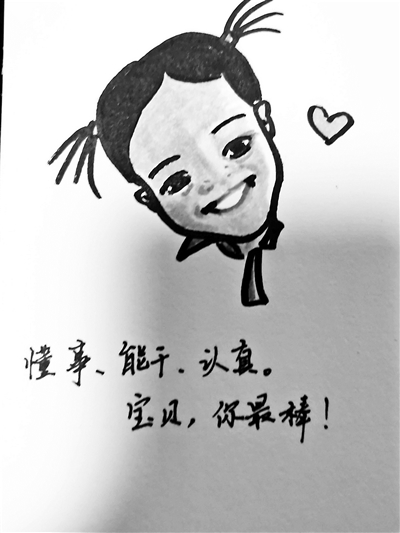 懂事、能干、认真。
宝贝，你最棒！